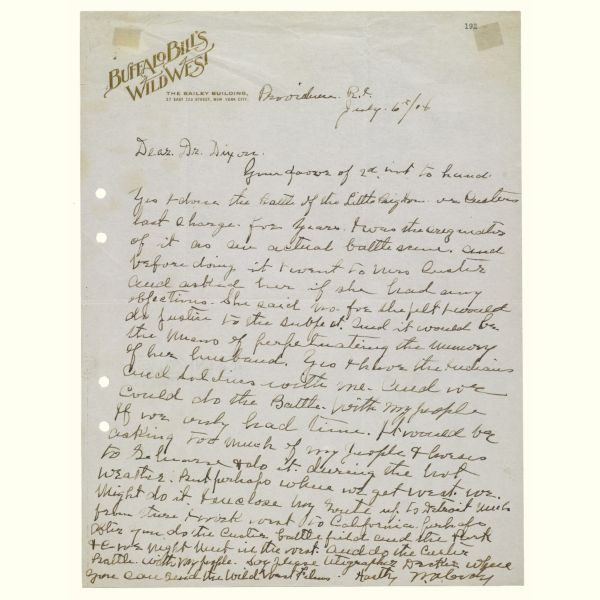 192
BUFFALO BILL'S
WILD WEST
THE BAILEY BUILDING,
27 EAST 22D STREET, NEW YORK CITY.
Providence R.I.
July 6th/08
Dear Dr. Dixon.
Your favor of 2d inst to hand
Yes I done the Battle of the Little Big Horn. or Custers
last Charge. for years. I was the originator
of it as an actual battle scene. and
before doing it I went to Mrs Custer
and asked her if she had any
objections. She said no. for she felt I would
do justice to the subject. And it would be
the means of perpetuating the memory
of her husband. Yes I have the Indians
and soldiers with me. and we
could do the Battle. with my people
If we only had time. It would be
asking too much of my people & horses
to rehearse & do it. during the hot
weather. But perhaps when we get west we
might do it I enclose my route up to Detroit Mich
from there I work west to California. Perhaps
after you do the Custer battle field and the Park
& we might meet in the west. and do the Custer
Battle. with my people. where
you can send the Wild West Films. Hastily W.F. Cody